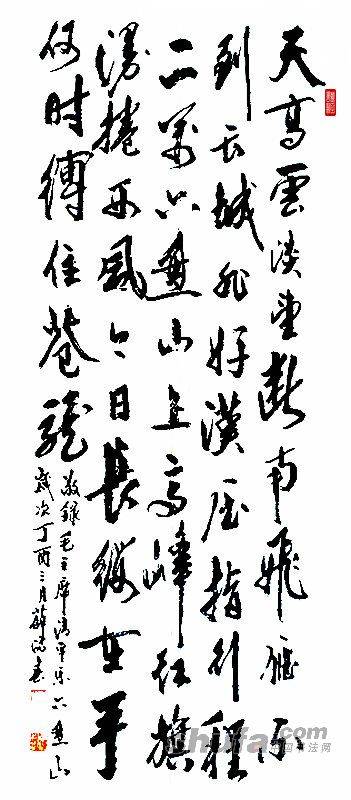 天高雲淡望斷南飛雁不
到长城非好漢屈指行程
二萬六盤山上高峰红旗
漫捲西風今日長缨在手
何时縛住苍龍
敬録毛主席清平乐六盤山
歲次丁酉三月薛
shufa.com
中国书法网